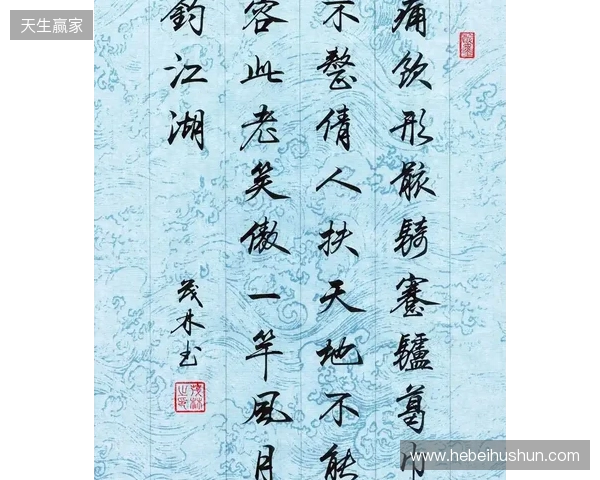 天生赢家
痛饮形骸騎蹇驢葛巾
不整倩人扶天地不能
容此老笑傲一竿風月
釣江湖
茂林书
www.hebeihushun.com